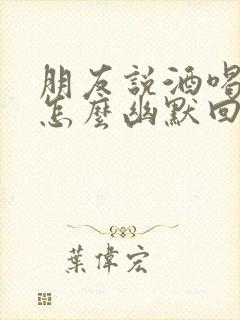 朋友說酒喝
怎麼幽默回
葉偉宏